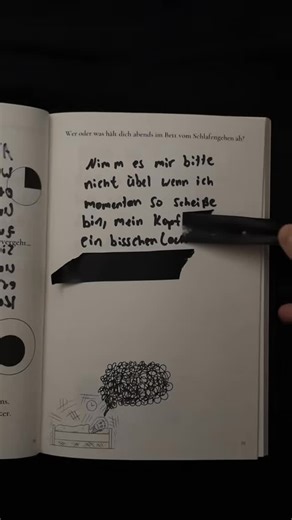 Wer oder was hält dich abends im Bett vom Schlafengehen ab?
Nimm es mir bitte
nicht übel wenn ich
momentan so scheiße
bin, mein Kopf
ein bisschen